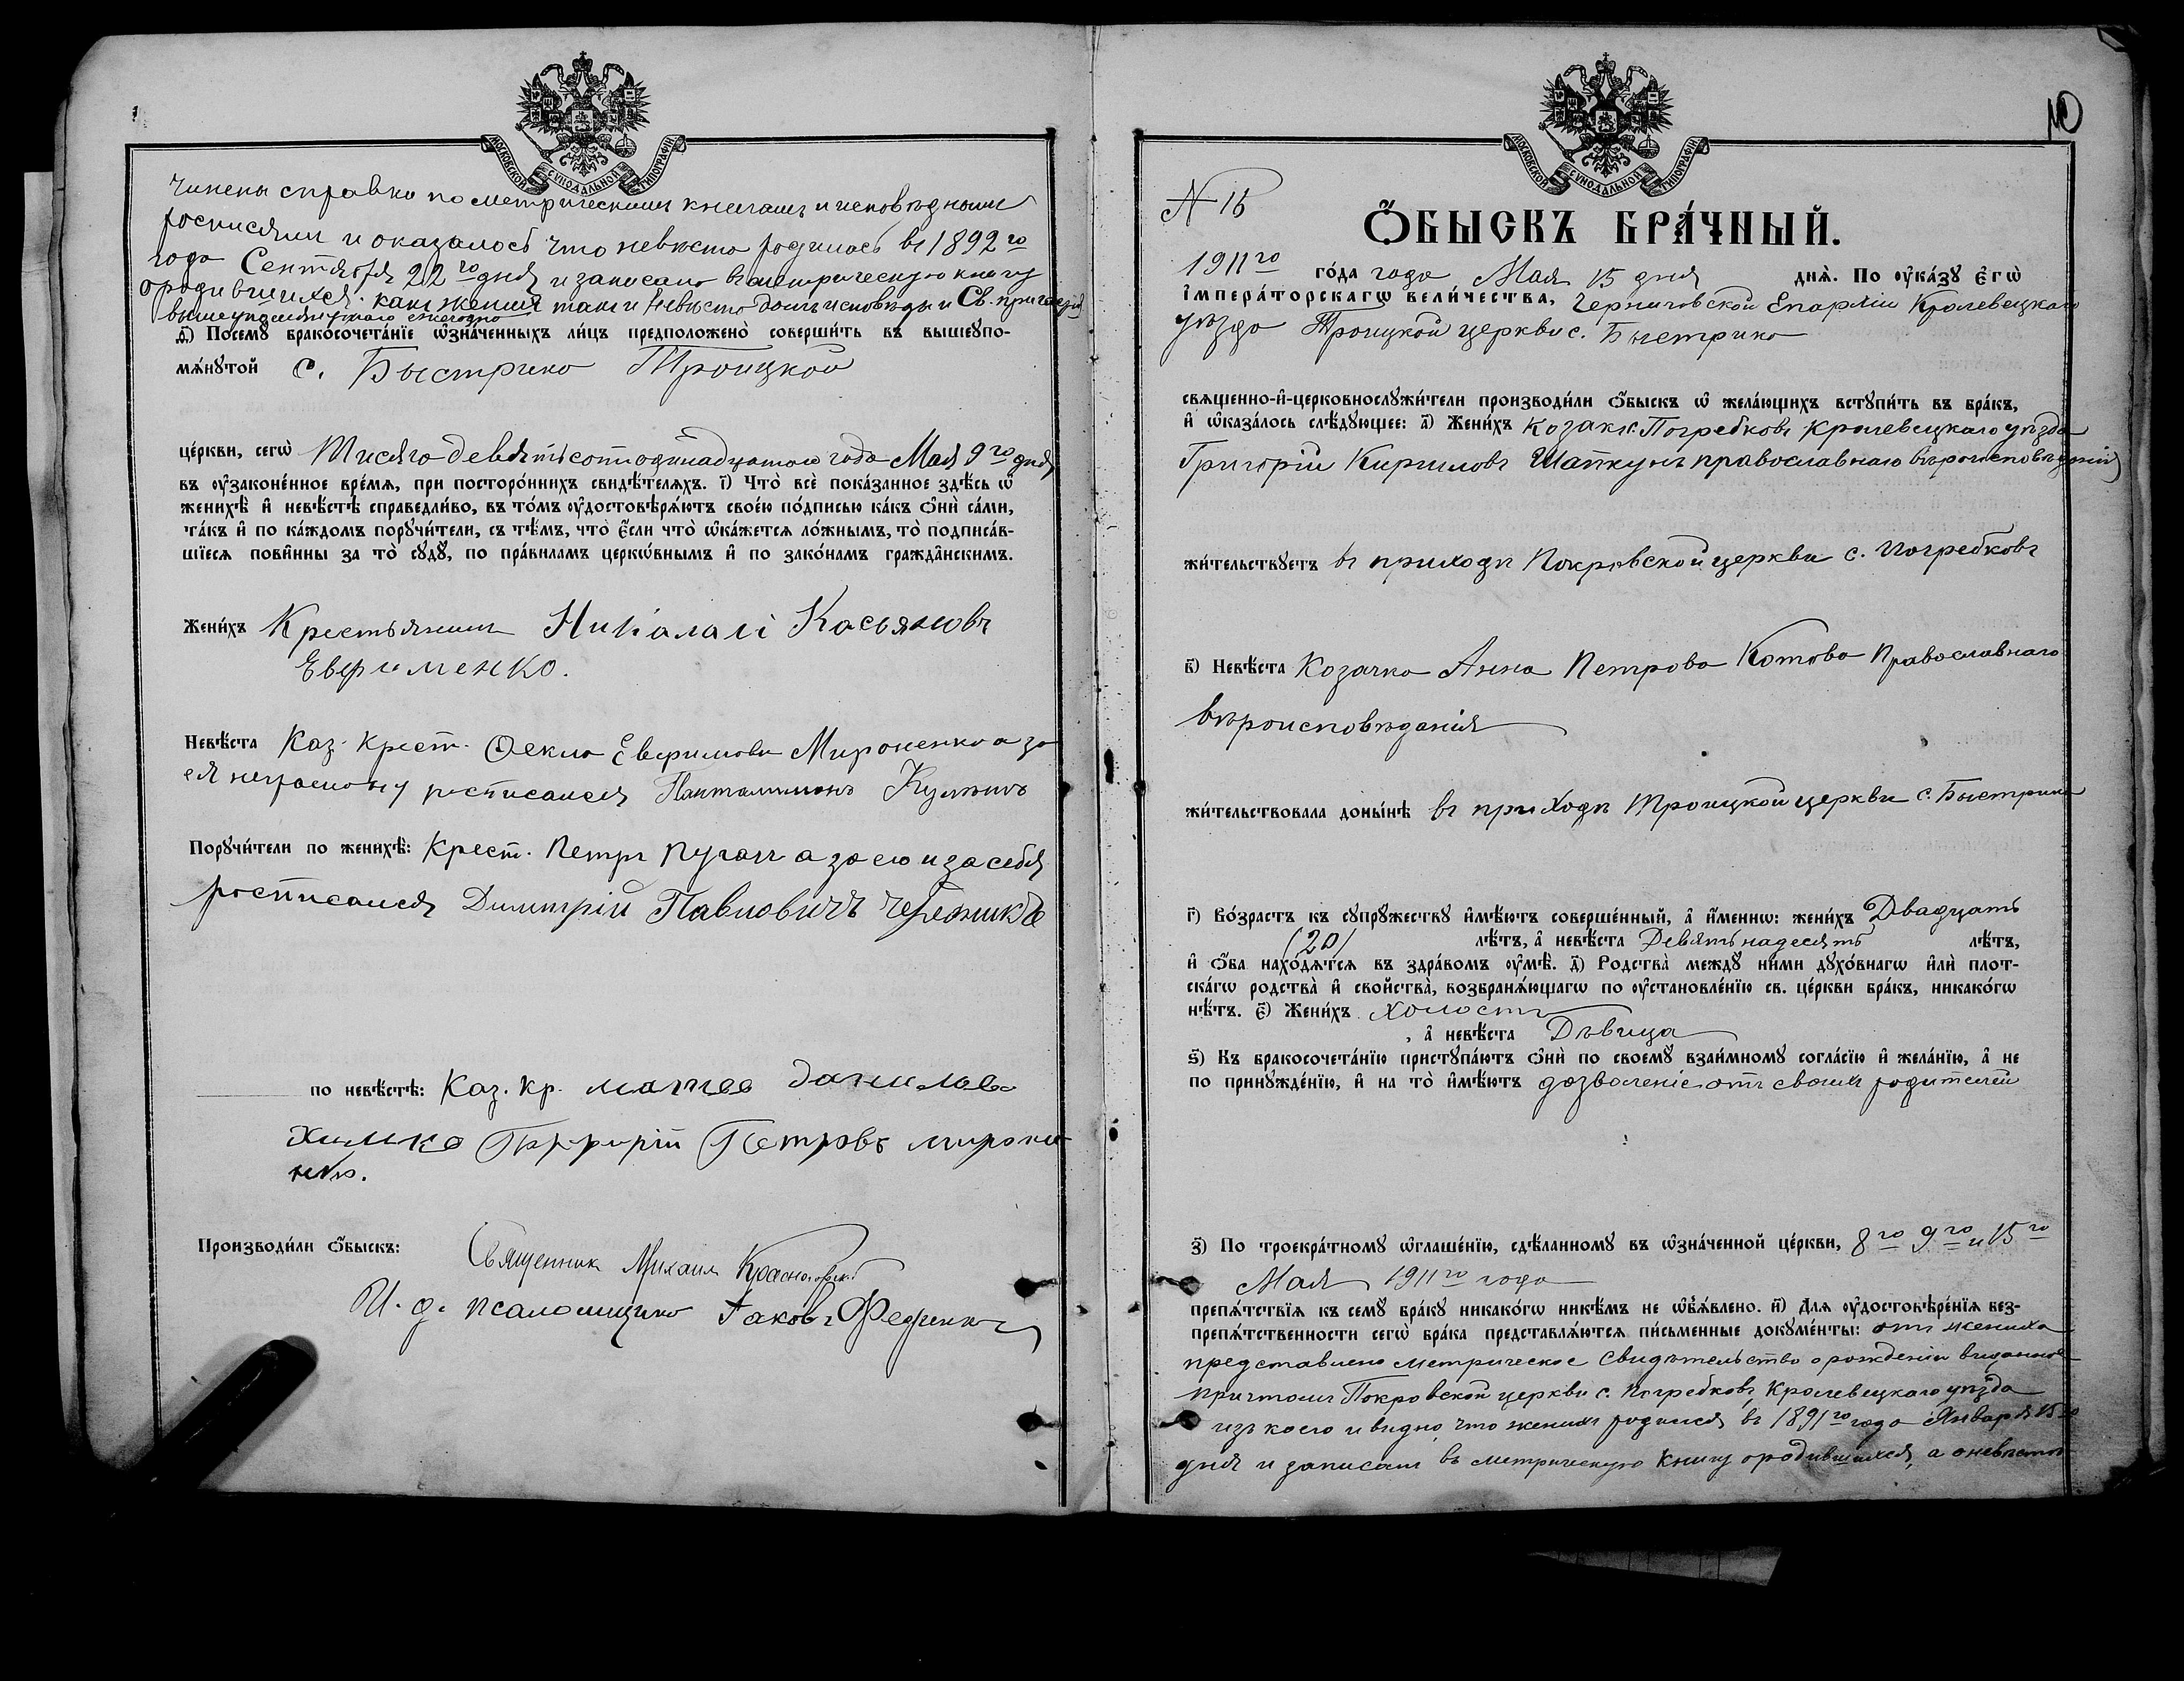 МОСКОВСКОЙ СѴНОДАЛЬНОЙ ТИПОГРАФІИ
чинены справки по метрическимъ книгамъ и исповѣднымъ
росписямъ и оказалось что невѣста родилась въ 1892 го
года Сентября 22 го дня и записана въ метрическую книгу
о родившихся. какъ женихъ такъ и невѣста были исповѣды и Св. причастія
вышеупомянутаго ежегодно
ѳ҃) Посемꙋ бракосочета́нїе ѡ҆зна́ченныхъ ли́цъ предположено̀ соверши́ть въ вышеупо-
мѧ́нꙋтой с. Быстрика Троицкой
це́ркви, сегѡ̀ Тисяча девятьсотъ одинадцатаго года Мая 9 го дня
въ ᲂу҆зако́ненное вре́мѧ, при посторо́ннихъ свидѣ́телѧхъ. і҃) Что̀ всѐ пока́занное здѣ́сь ѡ҆
женихѣ̀ и҆ невѣ́стѣ справедли́во, въ то́мъ ᲂу҆достовѣрѧ́ютъ свое́ю по́дписью ка́къ ѻ҆нѝ са́ми,
та́къ и҆ по ка́ждомъ порꙋчи́тели, съ тѣ́мъ, что̀ є҆́сли что̀ ѡ҆ка́жетсѧ ло́жнымъ, то̀ подписа́в-
шїесѧ пови́нны за то̀ сꙋдꙋ̀, по пра́виламъ церко́внымъ и҆ по зако́намъ гражда́нскимъ.
Жени́хъ Крестьянинъ Никалай Касьяновъ
Евфименко.
Невѣ́ста Каз. Крест. Ѳекла Евфимова Мироненкова за
ея неграмотну росписался Панталимонъ Кузминъ
Порꙋчи́тели по женихѣ̀: Крест. Петръ Пугачъ а за его и за себя
росписался Димитрій Павловичъ
по невѣ́стѣ: Каз. кр. матвѣ данилов
Химко Парфирій Петровъ мироне
нко.
Производи́ли ѻ҆́быскъ: Священникъ Михаилъ
И. д. псаломщика Іаковъ Федченко
МОСКОВСКОЙ СѴНОДАЛЬНОЙ ТИПОГРАФІИ
10
N 16
Ѻ҆́БЫСКЪ БРА́ЧНЫЙ.
1911 го го́да года Мая 15 дня днѧ̀. По ᲂу҆ка́зꙋ є҆гѡ̀
і҆мпера́торскагѡ вели́чества, Черниговской Епархіи Кролевецкаго
уѣзда Троицкой церкви с. Быстрика
свѧщенно-и҆-церковнослꙋжи́тели производи́ли ѻ҆́быскъ ѡ҆ жела́ющихъ встꙋпи́ть въ бра́къ,
и҆ ѡ҆каза́лось слѣ́дꙋющее: а҃) Жени́хъ Козакъ с. Погребковъ Кролевецкаго уѣзда
Григорій Кириловъ Шапкунъ православнаго вѣроисповѣданія
жи́тельствꙋетъ въ приходѣ Покровской церкви с. Погребковъ
в҃) Невѣ́ста Козачка Анна Петрова Котова Православнаго
вѣроисповѣданія
жи́тельствовала доны́нѣ въ приходѣ Троицкой церкви с. Быстрика
г҃) Во́зрастъ къ сꙋпрꙋ́жествꙋ и҆мѣ́ютъ соверше́нный, а҆ и҆́менно: жени́хъ Двадцать
(20) лѣ́тъ, а҆ невѣ́ста Девятьнадесять лѣ́тъ,
и҆ ѻ҆́ба нахо́дѧтсѧ въ здра́вомъ ᲂу҆мѣ̀. д҃) Родства̀ междꙋ̀ ни́ми дꙋхо́внагѡ и҆лѝ плот-
ска́гѡ родства̀ и҆ свойства̀, возбранѧ́ющагѡ по ᲂу҆становле́нїю св. це́ркви бра́къ, никако́гѡ
нѣ́тъ. є҃) Жени́хъ холостъ
, а҆ невѣ́ста Дѣвица
ѕ҃) Къ бракосочета́нїю пристꙋпа́ютъ ѻ҆нѝ по своемꙋ̀ взаи́мномꙋ согла́сїю и҆ жела́нїю, а҆ не
по принꙋжде́нїю, и҆ на то̀ и҆мѣ́ютъ дозволеніе отъ своихъ родителей
з҃) По троекра́тномꙋ ѡ҆глаше́нїю, сдѣ́ланномꙋ въ ѡ҆зна́ченной це́ркви, 8 го 9 го и 15 го
Мая 1911 го года
препѧ́тствїѧ къ семꙋ̀ бра́кꙋ никако́гѡ никѣ́мъ не ѡ҆б̾ѧ́влено. и҃) Для ᲂу҆достовѣре́нїѧ без-
препѧ́тственности сегѡ̀ бра́ка представлѧ́ютсѧ пи́сьменные докꙋме́нты: отъ жениха
представлено метрическое свидѣтельство о рожденіи выданное
причтомъ Покровской церкви с. Погребковъ, Кролевецкаго уѣзда
изъ коего и видно, что женихъ родился въ 1891 го года Января 15 го
дня и записанъ въ метрическую книгу о родившихся, а о невѣстѣ